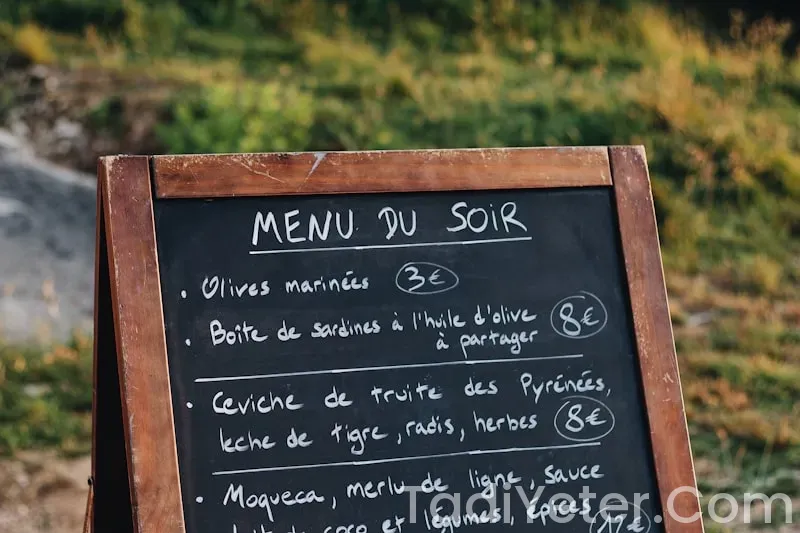 MENU DU SOIR
• Olives marinées 3€
• Boîte de sardines à l'huile d'olive 8€
à partager
• Ceviche de truite des Pyrénées,
leche de tigre, radis, herbes 8€
• Moqueca, merlu de ligne, sauce
lait de coco et légumes, épices
TadiYeter.Com